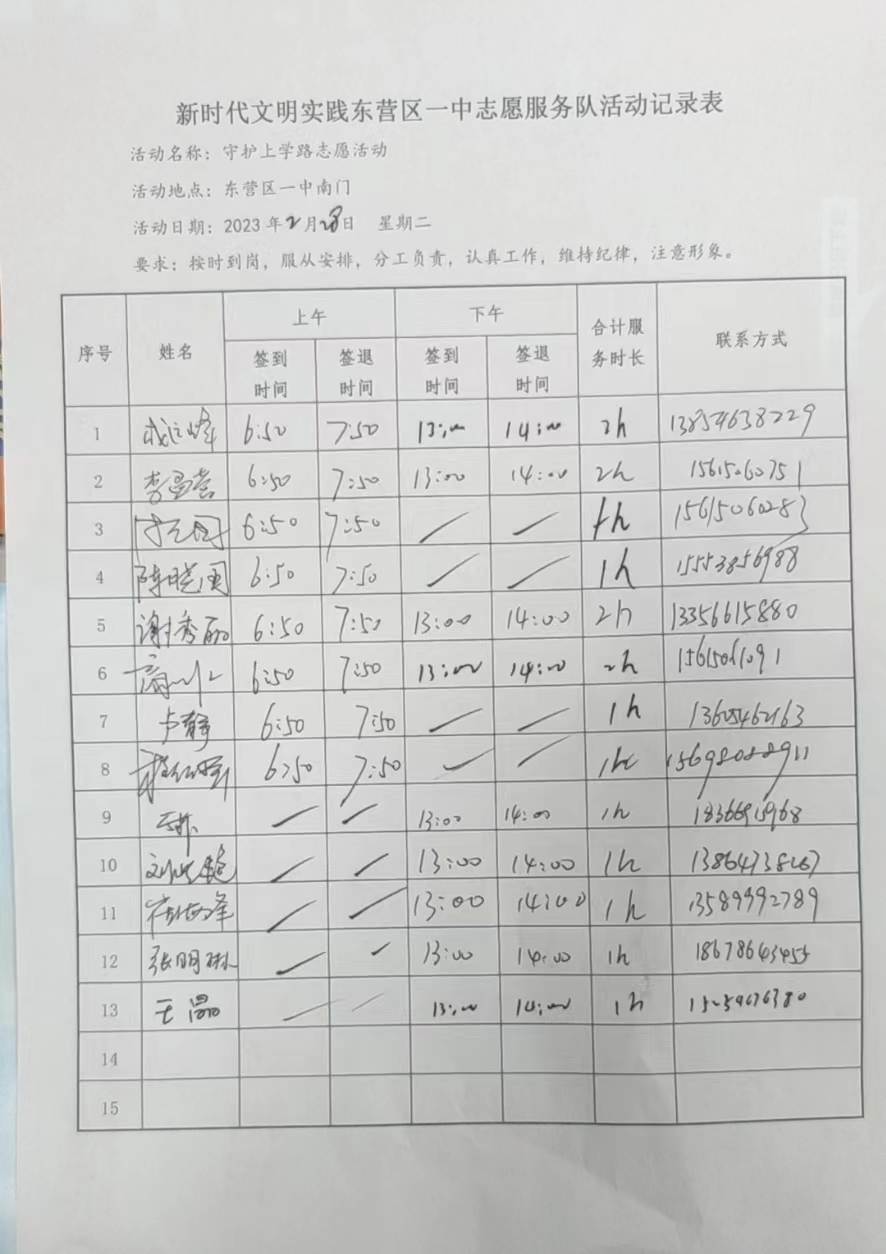 新时代文明实践东营区一中志愿服务队活动记录表
活动名称：守护上学路志愿活动
活动地点：东营区一中南门
活动日期：2023年2月28日 星期二
要求：按时到岗，服从安排，分工负责，认真工作，维持纪律，注意形象。
序号 姓名 上午 下午 合计服务时长 联系方式
签到时间 签退时间 签到时间 签退时间
1 6:50 7:50 13:00 14:00 2h 13854638229
2 6:50 7:50 13:00 14:00 2h 15615060751
3 6:50 7:50 / / 1h 15615060283
4 陈晓国 6:50 7:50 / / 1h 15553856988
5 谢秀丽 6:50 7:50 13:00 14:00 2h 13356615880
6 6:50 7:50 13:00 14:00 2h 15615061091
7 卢静 6:50 7:50 / / 1h
8 6:50 7:50 / / 1h 15698088911
9 / / 13:00 14:00 1h
10 / / 13:00 14:00 1h
11 / / 13:00 14:00 1h 13589992789
12 张明琳 / / 13:00 14:00 1h 18678643455
13 王晶 / / 13:00 14:00 1h
14
15